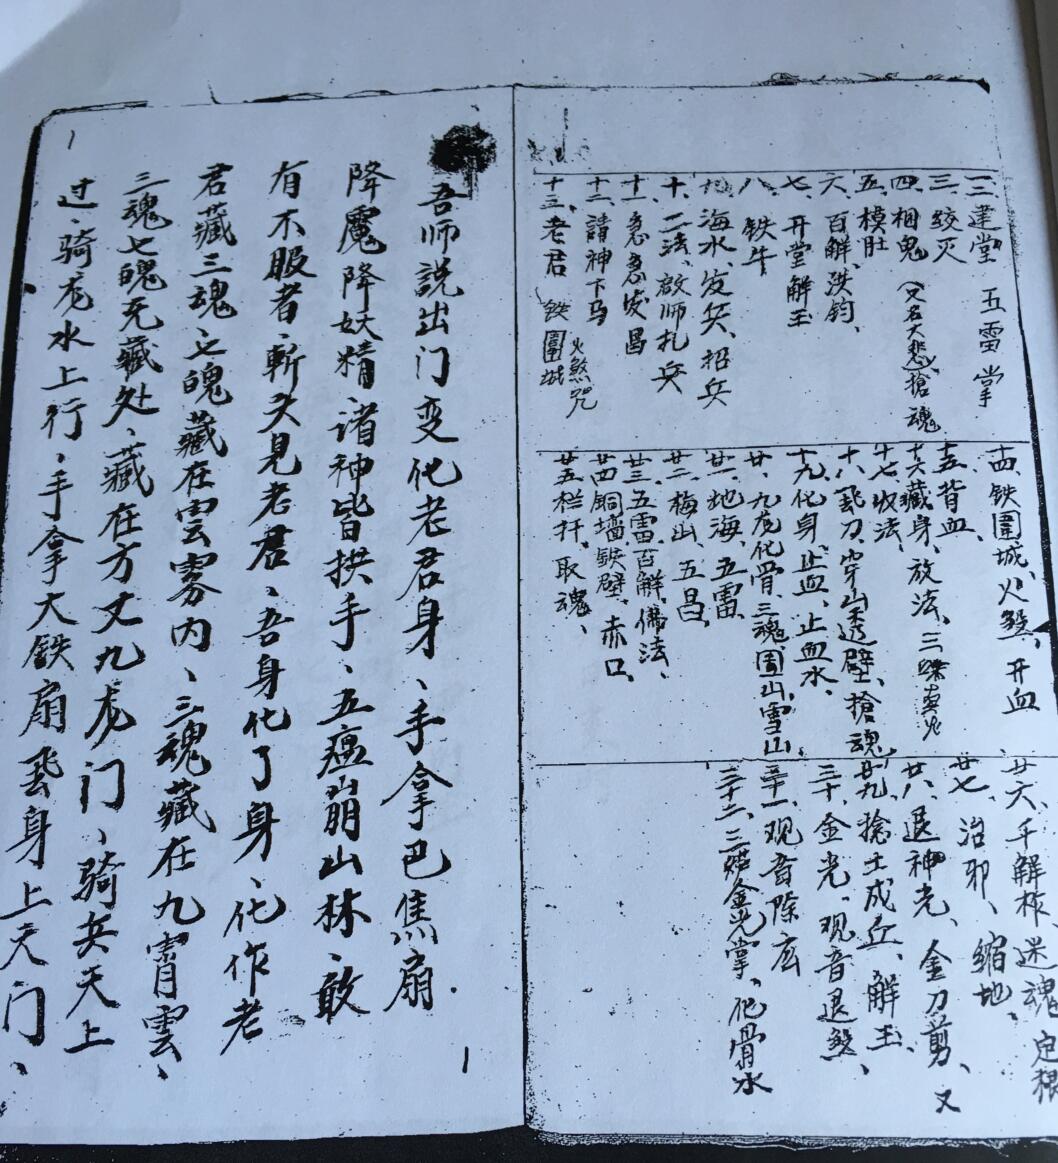 一二建堂 五雷掌
三、绞灭
四、相鬼（又名大悲、搶魂
五、模肚
六、百解、鉄鈎、
七、开堂解王
八、铁牛
九、海水、发兵、招兵
十、二法、啟师扎兵
十一、急急 昌
十二、請神下马 火煞咒
十三、老君 铁圍城
十四、铁圍城、火煞、开血
十五、背血、
十六、藏身、放法、三
十七、收法、
十八、飛刀、穿山透壁、搶魂
十九、化身、止血、止血水、
廿、九龙化骨、三魂、围山、雪山
廿一、地海、五雷、
廿二、梅出、五昌、
廿三、五雷百解、佛法、
廿四、銅墙鉄壁、赤口、
廿五、栏扦、取魂、
廿六、千解根、迷魂、定根
廿七、治邪、缩地、
廿八、退神光、金刀剪、又
廿九、搶土成丘、解王、
三十、金光、观音退煞、
三十一、观音除
三十二、三姐金光掌、化骨水
吾师説出门变化老君身、手拿巴焦扇
降魔降妖精、诸神皆拱手、五瘟崩山林、敢
有不服者、斬头見老君、吾身化了身、化作老
君藏三魂七魄藏在雲雾内、三魂藏在九霄雲、
三魂七魄无藏处、藏在方丈九龙门、骑兵天上
过、骑龙水上行、手拿大鉄扇飛身上天门、
1
1